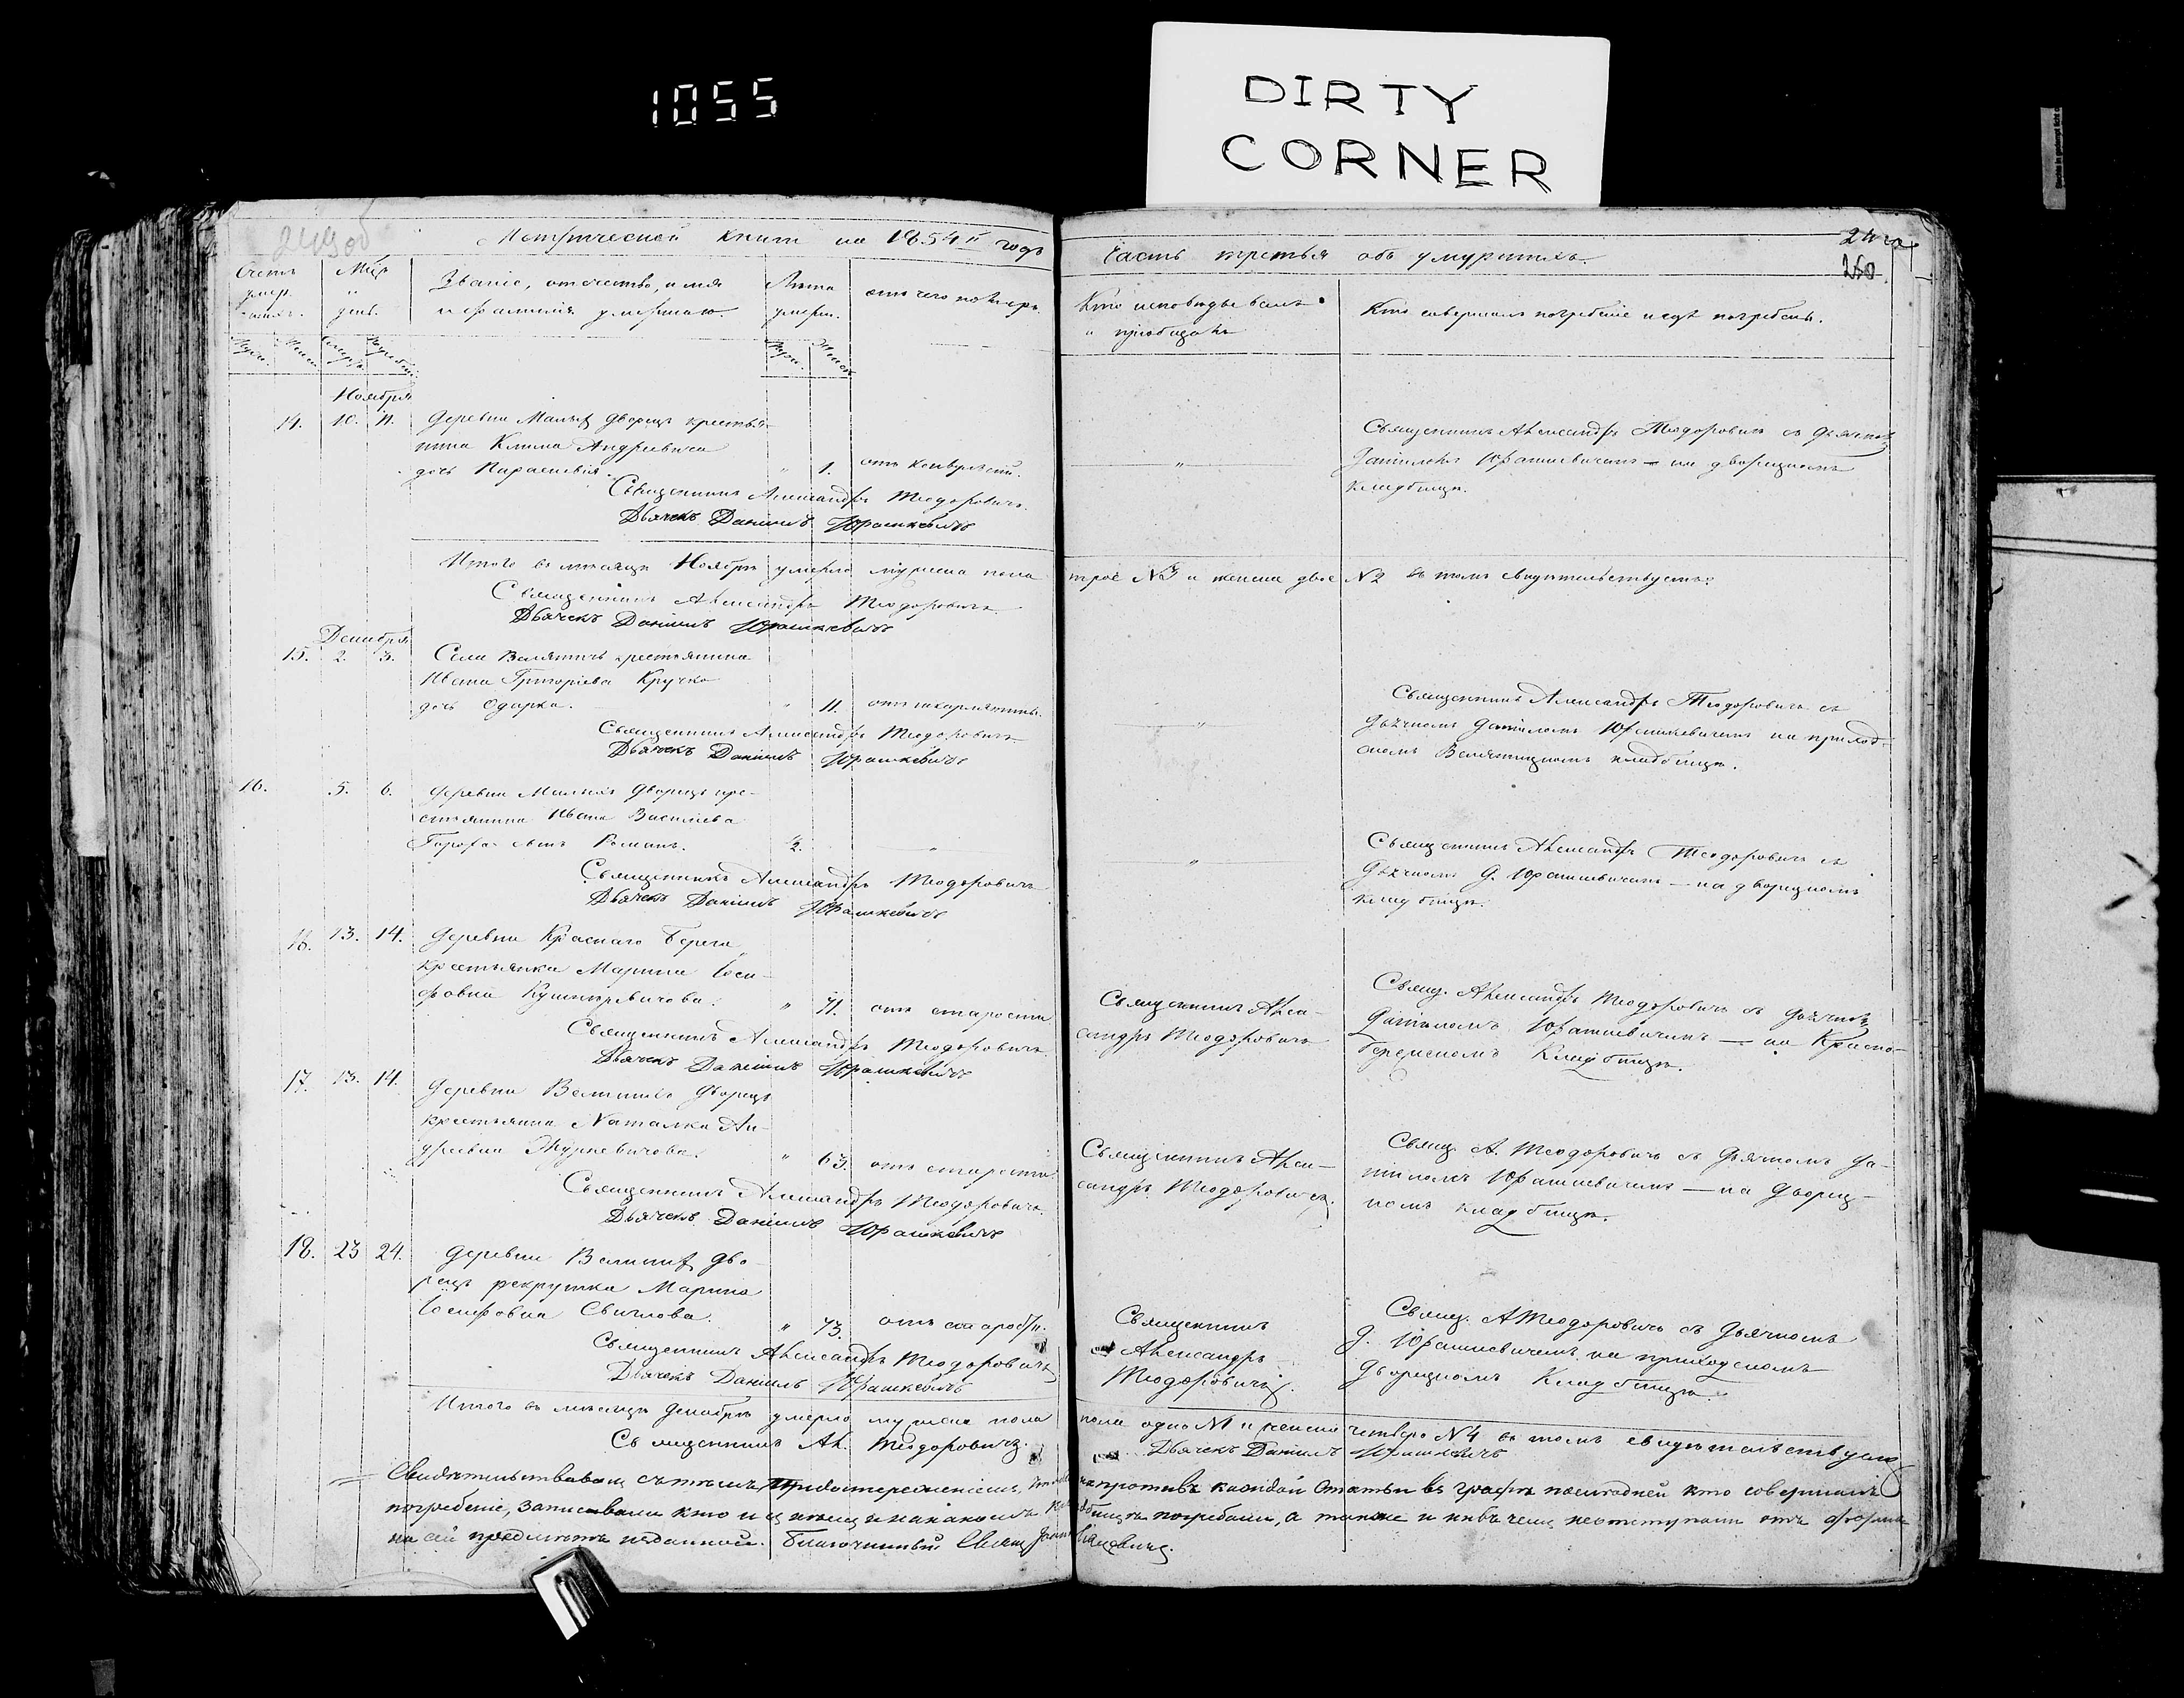 1055
DIRTY
CORNER
249об
Метрической книги на 1854й годъ
Часть третья объ умершихъ.
250
Счетъ умер-шихъ.
Мѣц. и день.
Званіе, отечество, имя
и фамилія умершаго.
Лѣта умерш.
отъ чего померъ
Кто исповѣдывалъ
и пріобщалъ
Кто совершалъ погребеніе и гдѣ погребены.
Муж. Женск. Смерт. Погребен.
Муж. Женск.
Ноября
14. 10. 11. Деревни Малых Дворецъ крестья-
нина Клима Андреевича
дочь Параскевія. " 1. отъ конвульсіи.
Священникъ Александръ Теодоровичъ.
Дьячекъ Даніилъ Юрашкевичъ
"
Священникъ Александръ Теодоровичъ съ дьячкомъ
Даніиломъ Юрашкевичемъ – на дворецкомъ
кладбищѣ.
Итого въ мѣсяцѣ Ноябрѣ умерло мужеска пола
трое №3 и женска двое №2 въ томъ свидѣтельствуетъ:
Священникъ Александръ Теодоровичъ
Дьячекъ Даніилъ Юрашкевичъ
Декабря
15. 2. 3. Села Велятичъ крестьянина
Ивана Григоріева Кручка
дочь Одарка. " 11. отъ шкарлятины.
Священникъ Александръ Теодоровичъ
Дьячекъ Даніилъ Юрашкевичъ
"
Священникъ Александръ Теодоровичъ съ
дьячкомъ Даніиломъ Юрашкевичемъ на приход-
скомъ Велятицкомъ кладбищѣ.
16. 5. 6. Деревни Малых Дворецъ кре-
стьянина Ивана Василіева
сынъ Романъ. 2. "
Священникъ Александръ Теодоровичъ
Дьячекъ Даніилъ Юрашкевичъ
"
Священникъ Александръ Теодоровичъ съ
дьячкомъ Д. Юрашкевичемъ – на дворецкомъ
кладбищѣ.
16. 13. 14. Деревни Краснаго Берега
крестьянка Марина Іоси-
фовна " 71. отъ старости
Священникъ Александръ Теодоровичъ
Дьячекъ Даніилъ Юрашкевичъ
Священникъ Алек-
сандръ Теодоровичъ
Свящ. Александръ Теодоровичъ съ дьячкомъ
Даніиломъ Юрашкевичемъ – на Красно-
бережскомъ Кладбищѣ.
17. 13. 14. Деревни Великихъ Дворецъ
крестьянка Наталка Ан-
дреевна Журкевичова. " 63. отъ старости
Священникъ Александръ Теодоровичъ.
Дьячекъ Даніилъ Юрашкевичъ
Священникъ Алек-
сандръ Теодоровичъ.
Свящ. А. Теодоровичъ съ дьячкомъ Да-
ніиломъ Юрашкевичемъ – на Дворец-
комъ кладбищѣ.
18. 23 24. Деревни Великих Дво-
рецъ рекрутка Марина
Іосифовна " 73. отъ старости.
Священникъ Александръ Теодоровичъ
Дьячекъ Даніилъ Юрашкевичъ
Священникъ
Александръ
Теодоровичъ.
Свящ. А Теодоровичъ съ дьячкомъ
Д. Юрашкевичемъ на приходскомъ
Дворецкомъ Кладбищѣ.
Итого въ мѣсяцѣ Декабрѣ умерло мужеска пола
пола одно №1 и женска четверо №4 въ томъ свидѣтельствуютъ
Священникъ Ал. Теодоровичъ.
Дьячекъ Даніилъ Юрашкевичъ
Свидѣтельствовалъ съ тѣмъ предостереженіемъ, чтобы напротивъ каждой статьи въ графѣ послѣдней кто совершалъ
погребеніе, записывали кто и на какомъ кладбищѣ погребали, а также и ни въ чемъ не отступали отъ формы
на сей предметъ изданной. Благочинный Свящ.